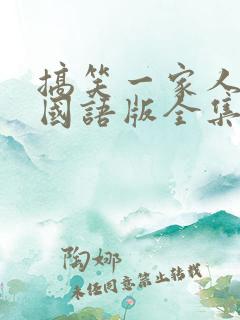 搞笑一家人
國語版全集
陶娜
未经同意禁止转载